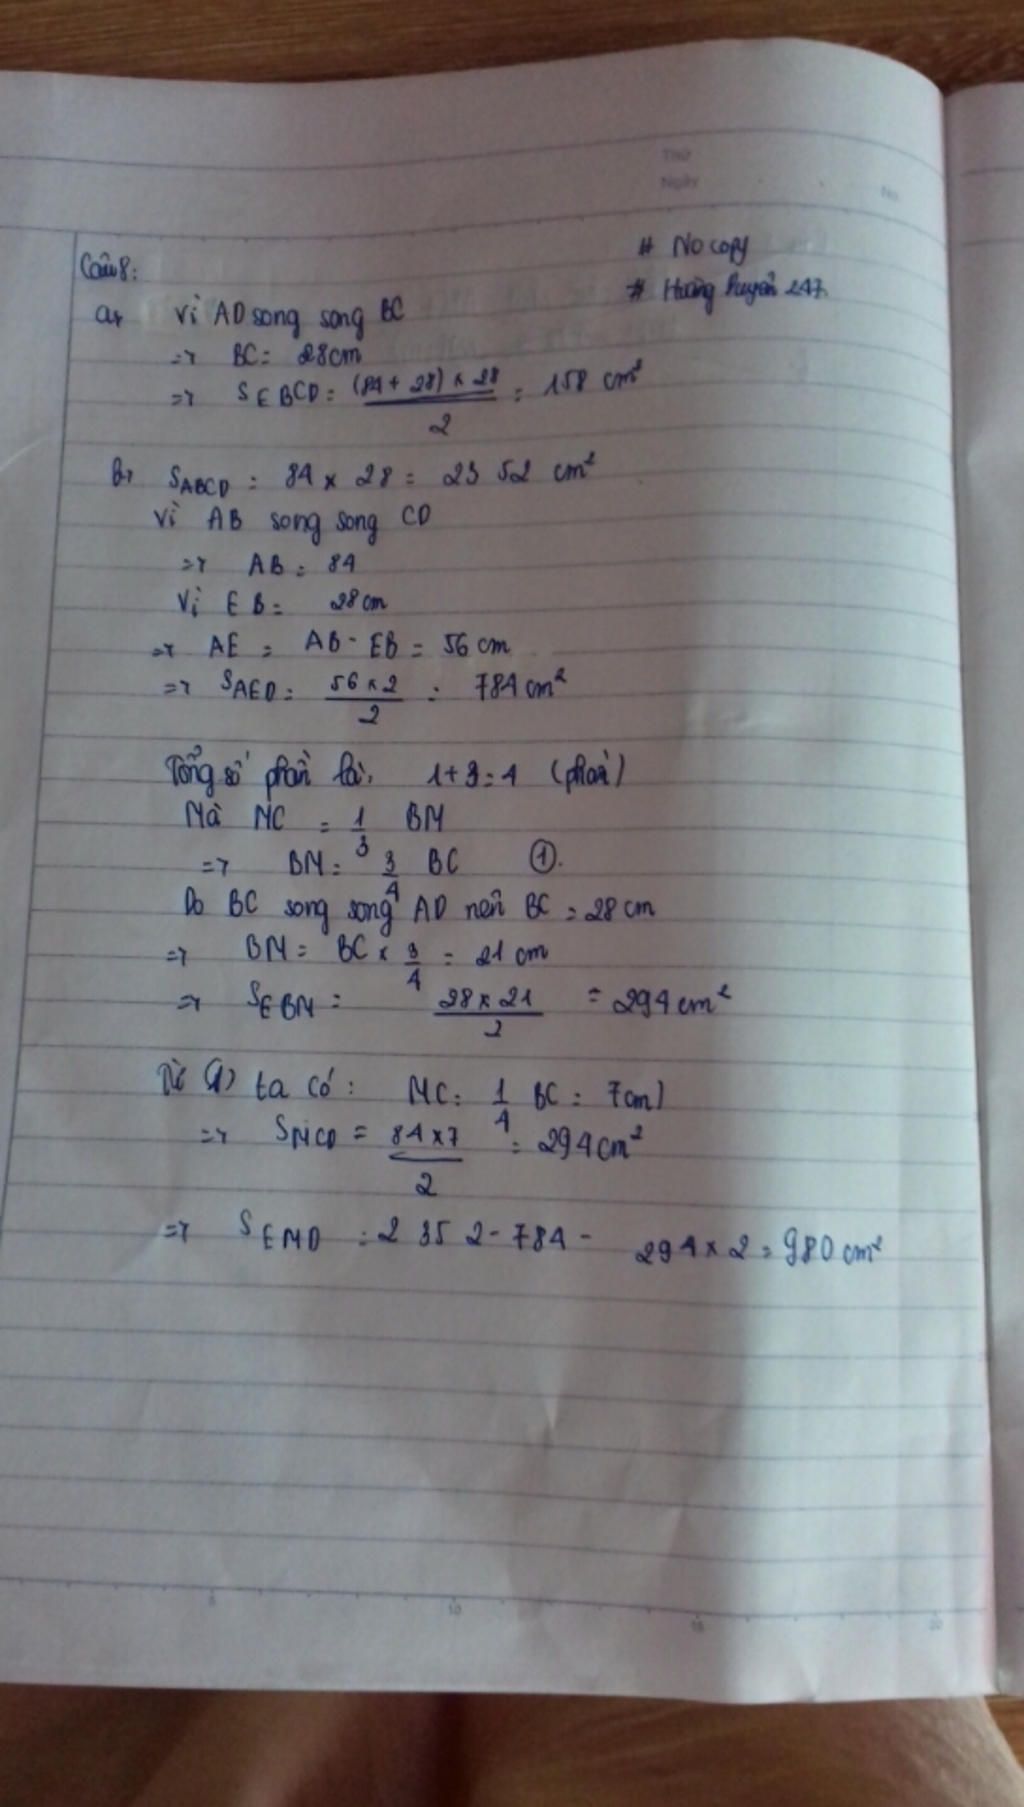 Thứ
Ngày
No.
# No copy
# Hương huyền 247.
Câu 8:
a, Vì AD song song BC
=> BC = 28cm
=> S EBCD = (84 + 28) x 28 / 2 = 158 cm²
b, S ABCD = 84 x 28 = 23 52 cm²
Vì AB song song CD
=> AB = 84
Vì EB = 28cm
=> AE = AB - EB = 56 cm
=> S AED = 56 x 2 / 2 = 784 cm²
Tổng số phần là: 1+3=4 (phần)
Mà MC = 1/3 BM
=> BM = 3/4 BC ①.
Do BC song song AD nên BC = 28 cm
=> BM = BC x 3/4 = 21 cm
=> S EBM = 28 x 21 / 2 = 294 cm²
Từ (1) ta có: MC = 1/4 BC = 7cm)
=> S MCD = 84 x 7 / 2 = 294 cm²
=> S EMD = 2 35 2 - 784 - 294 x 2 = 980 cm²
5 10 15 20